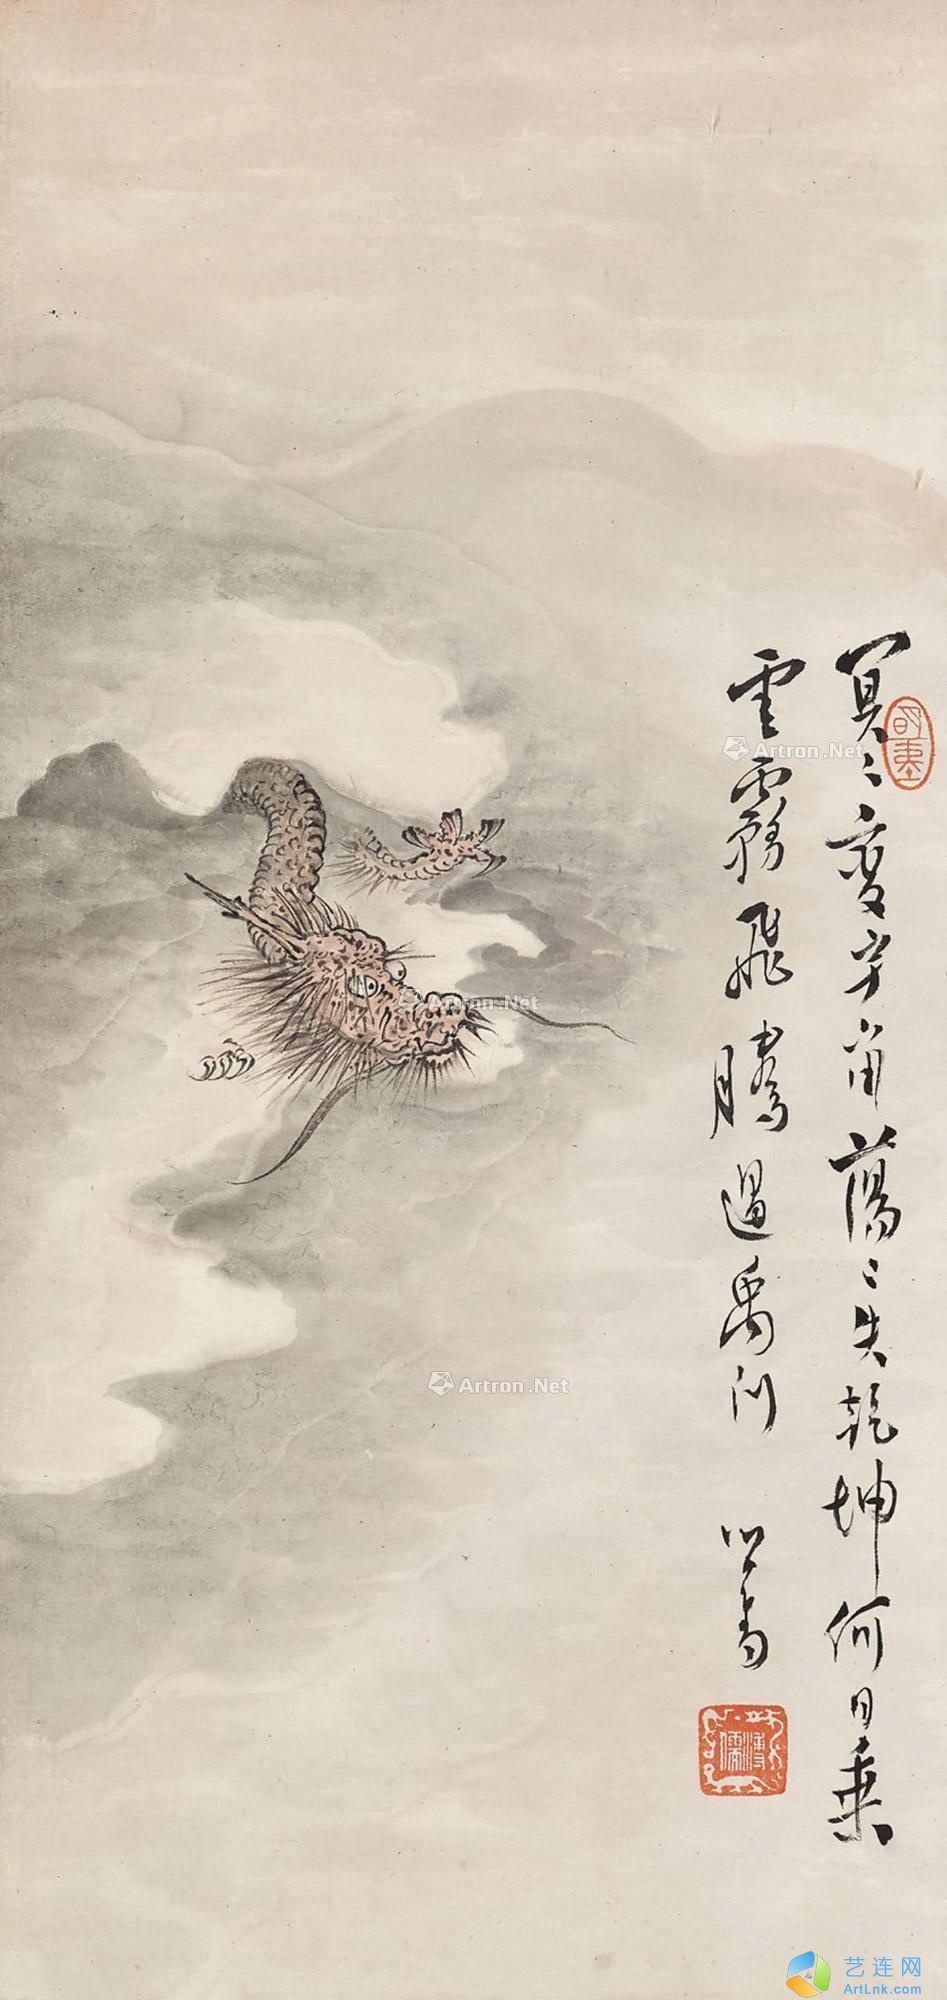 冥〻變宇宙蕩〻失乾坤何日乘
雲霧飛騰過禹門
心畬
明夷
溥儒
Artron.Net
Artron.Net
Artron.Net
艺连网
ArtLnk.com